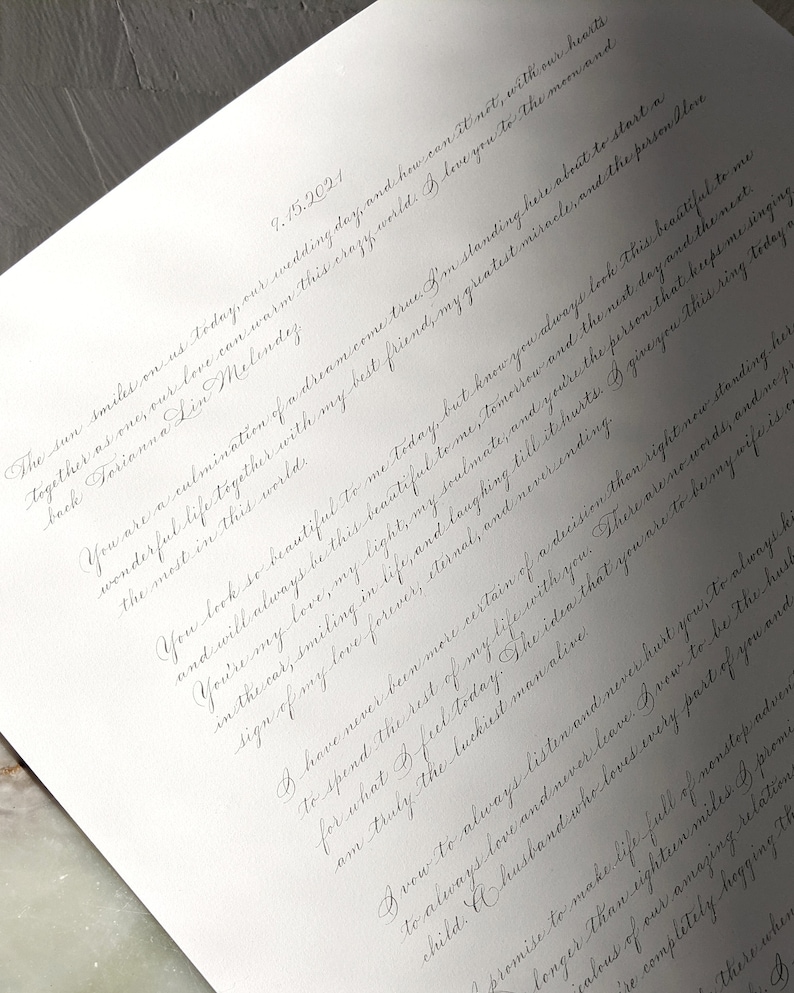 9.15.2021
The sun smiles on us today, our wedding day, and how can it not, with our hearts
together as one, our love can warm this crazy world. I love you to the moon and
back Torianna Lin Melendez.
You are a culmination of a dream come true. I'm standing here about to start a
wonderful life together with my best friend, my greatest miracle, and the person I love
the most in this world.
You look so beautiful to me today, but know you always look this beautiful to me
and will always be this beautiful to me, tomorrow and the next day and the next.
You're my love, my light, my soulmate, and you're the person that keeps me singing
in the car, smiling in life, and laughing till it hurts. I give you this ring today
sign of my love forever, eternal, and never ending.
I have never been more certain of a decision than right now standing here
to spend the rest of my life with you. There are no words, and no
for what I feel today. The idea that you are to be my wife is
am truly the luckiest man alive.
I vow to always listen and never hurt you, to always
to always love and never leave. I vow to be the
child. A husband who loves every part of you and
I promise to make life full of nonstop
longer than eighteen miles. I
of our amazing
completely hogging
there when